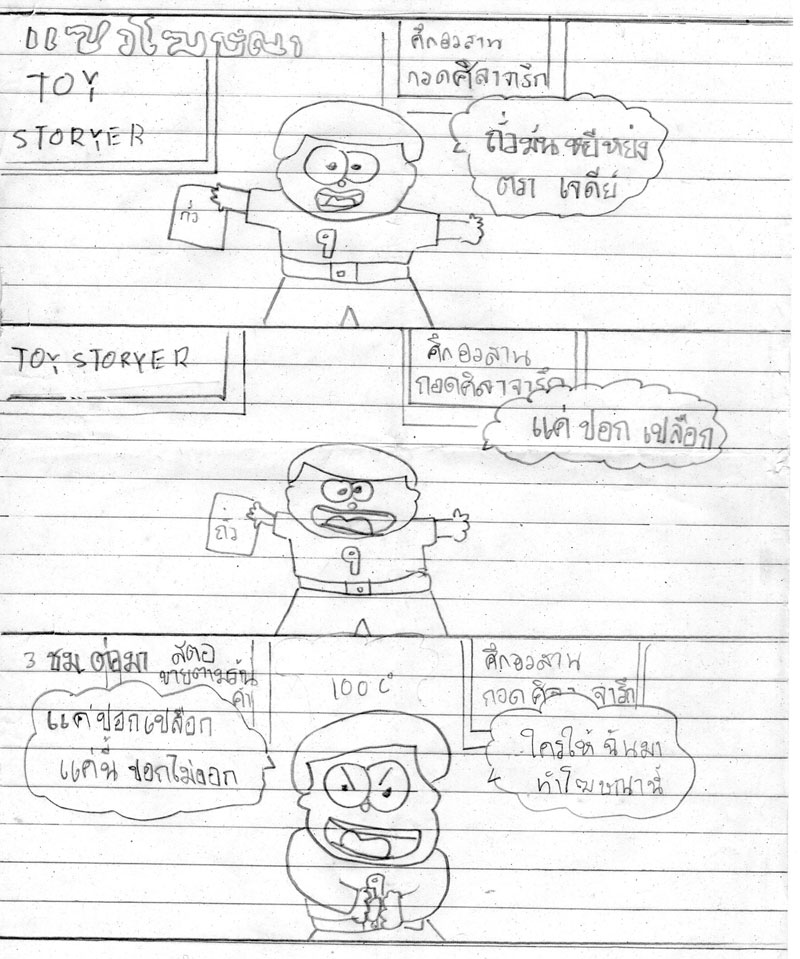 แซวโฆษณา
TOY
STORYER
ศึกอวสาน
กอดศิลาจารึก
ถั่วมันขยี้หย่ง
ตรา เจดีย์
ถั่ว
9
TOY STORYER
ศึกอวสาน
กอดศิลาจารึก
แค่ ปอก เปลือก
ถั่ว
9
3 ชม ต่อมา
100 C
ศึกอวสาน
กอดศิลาจารึก
แค่ปอกเปลือก
แค่นี้ ปอกไม่ออก
ใครให้ ฉันมา
ทำโฆษณานี้
9